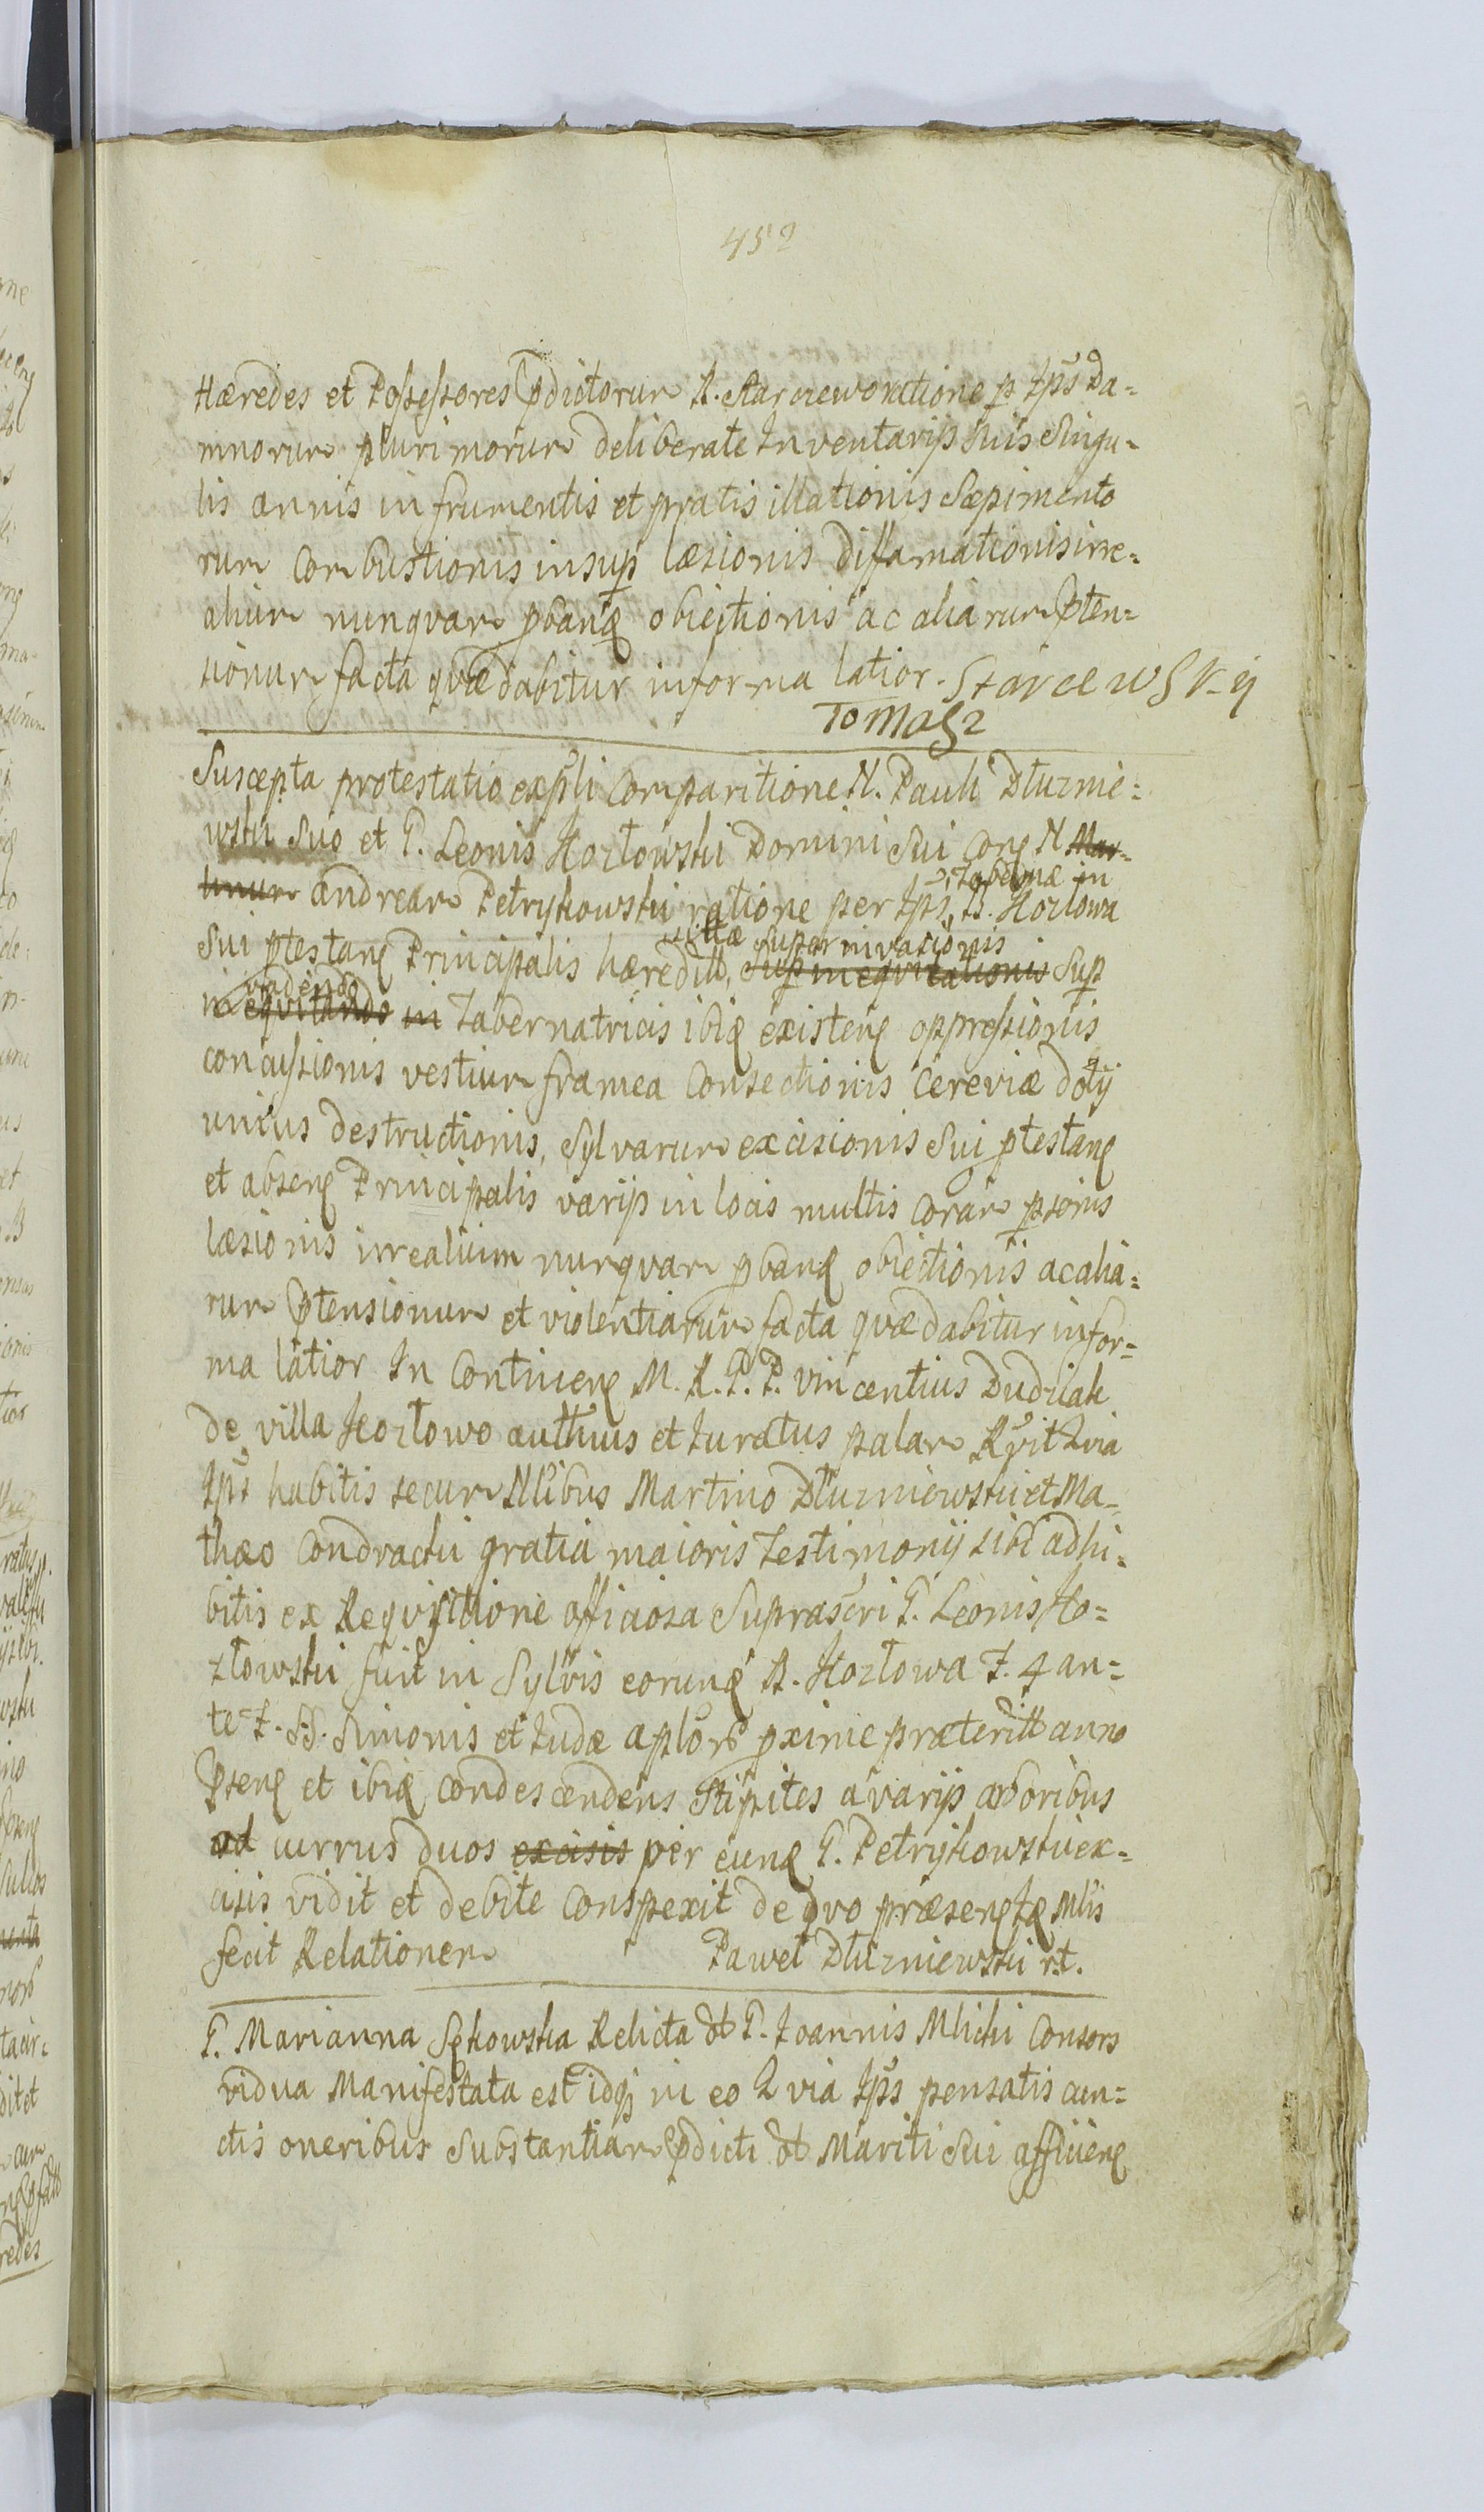 452
Hæredes et Possessores pdictorum B. Starczewo ratione p Ips Da-
mnorum plurimorum deliberate Inventarijs suis Singu-
lis annis in frumentis et pratis illationis Sæpimento
rum Combustionis insup læsionis diffamationis irre-
alium nunquam pbanq obiectionis ac aliarum pten-
sionum facta quæ dabitur in forma latior. Starcewsky
Tomasz
Suscepta protestatio expsli Comparitione N. Pauli Dłuznie-
wski Suo et G. Leonis Kozłowski Domini Sui Conq N Mar-
tinum andream Petrykowski ratione per Ips, Tabernæ in B. Kozłowa
Sui ptestanq Principalis hæreditt, villæ Superinvasionis Sup inequitationis Sup
in vadendo equitando in Tabernatricis ibiq existenq oppressionis
concussionis vestium framea Consectionis Cereviæ dolij
unius destructionis, Sylvarum excisionis Sui ptestanq
et absenq Principalis varijs in locis multis Coram psonis
læsionis irrealium nunquam pbanq obiectionis ac alia-
rum ptensionum et violentiarum facta quæ dabitur in for-
ma latior In Continenq M. R. P. P. Vincentius Dudziak
de villa Kozłowo authus et Juratus palam Rgvit Quia
Ips habitis secum Nlibus Martino Dłuzniewski et Ma-
thæo Condracki gratia maioris Testimonij sibi adhi-
bitis ex Requisitione officiosa Suprascri G. Leonis Ko-
złowski fuit in Sylvis eorunq B. Kozłowa F. 4 an-
te F. SS. Simonis et Judæ aplor pxime præteritt anno
Psenq et ibiq condescendens Stipites a varijs arboribus
ad currus duos excisis per eunq G. Petrykowski ex-
cisis vidit et debite Conspexit de quo præsenq Iq Mlis
fecit Relationem Paweł Dłuzniewski r.t.
G. Marianna Sękowska Relicta olt G. Joannis Mlicki Consors
vidua Manifestata est idq in eo Quia Ips pensatis cun-
ctis oneribus Substantiam pdicti olt Mariti Sui affluenq